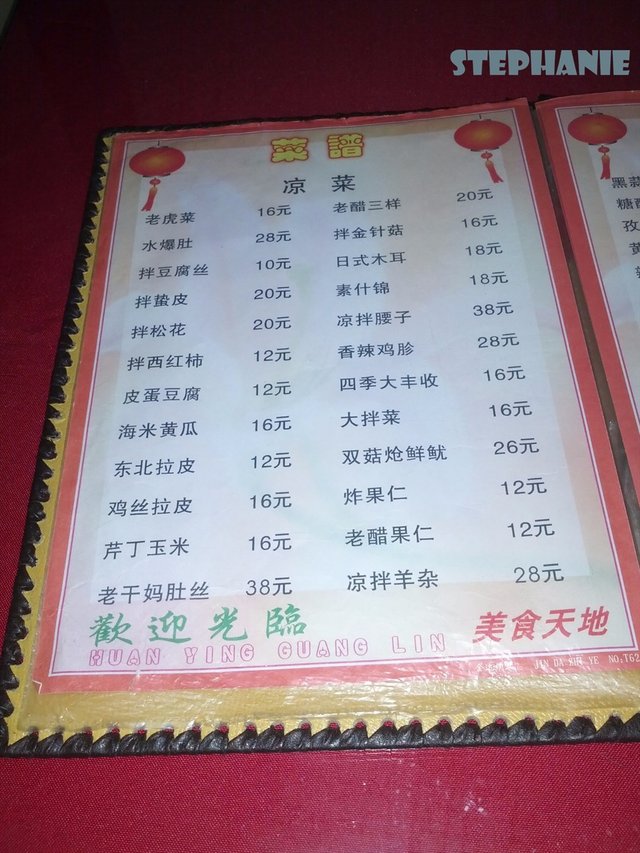 STEPHANIE
菜譜
凉菜
老虎菜 16元 老醋三样 20元
水爆肚 28元 拌金针菇 16元
拌豆腐丝 10元 日式木耳 18元
拌蛰皮 20元 素什锦 18元
拌松花 20元 凉拌腰子 38元
拌西红柿 12元 香辣鸡胗 28元
皮蛋豆腐 12元 四季大丰收 16元
海米黄瓜 16元 大拌菜 16元
东北拉皮 12元 双菇炝鲜鱿 26元
鸡丝拉皮 16元 炸果仁 12元
芹丁玉米 16元 老醋果仁 12元
老干妈肚丝 38元 凉拌羊杂 28元
歡迎光臨 美食天地
HUAN YING GUANG LIN
JIN DA SHI YE NO:T62
黑蒜
糖醋
孜
黄